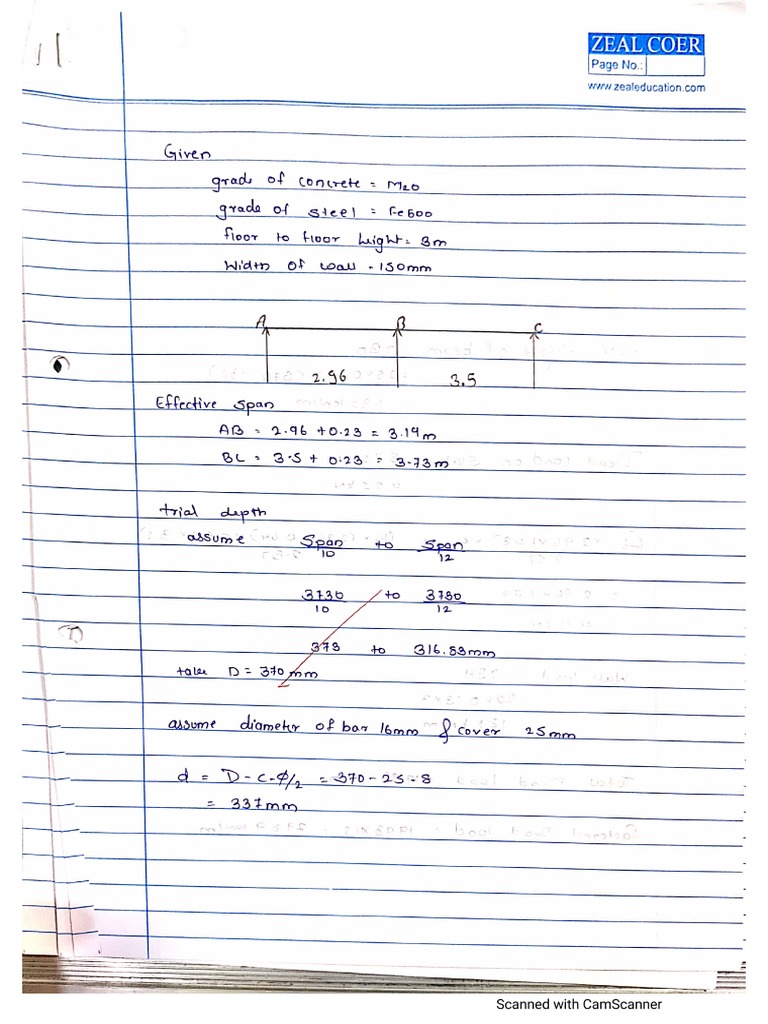 11
ZEAL COER
Page No.:
www.zealeducation.com
Given
grade of concrete = M20
grade of steel = Fe500
floor to floor height = 3m
Width of wall = 150mm
A B C
2.96 3.5
Effective span
AB = 2.96 + 0.23 = 3.19m
BC = 3.5 + 0.23 = 3.73m
trial depth
assume Span/10 to Span/12
3730/10 to 3730/12
373 to 316.83mm
take D = 370mm
assume diameter of bar 16mm & cover 25mm
d = D - c - φ/2 = 370 - 25 - 8
= 337mm
Scanned with CamScanner